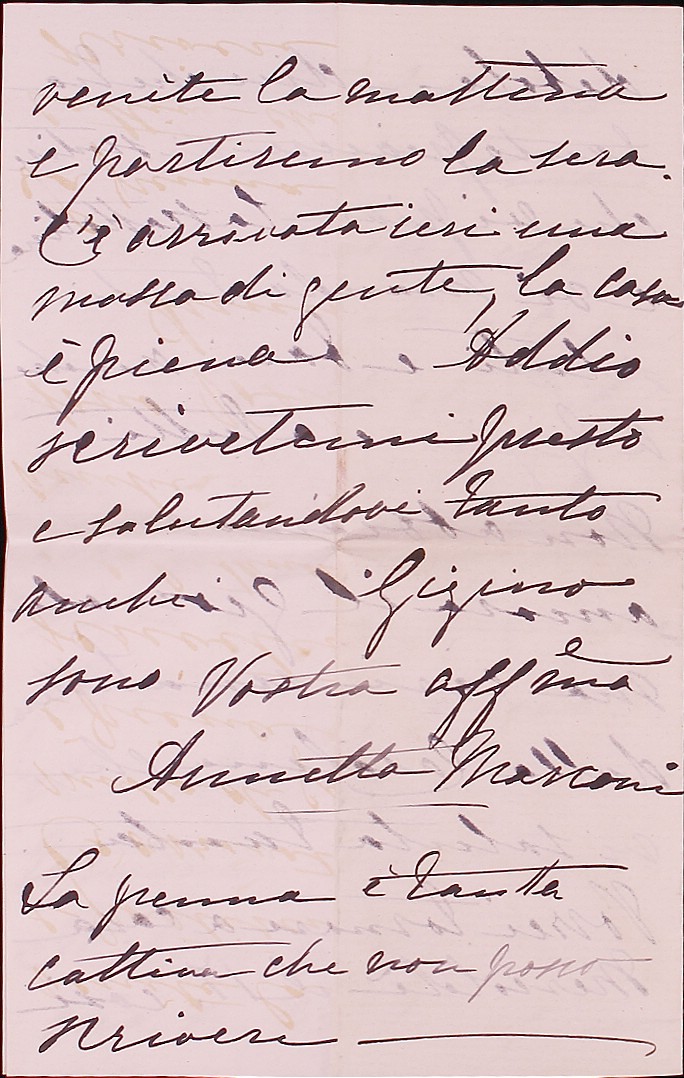 venite la mattina
e partiremo la sera.
C'è arrivata ieri una
massa di gente, la casa
è piena. Addio
scrivetemi presto
e salutandovi tanto
anche Gigino
sono Vostra affma
Annetta Marconi
La penna è tanta
cattiva che non posso
scrivere